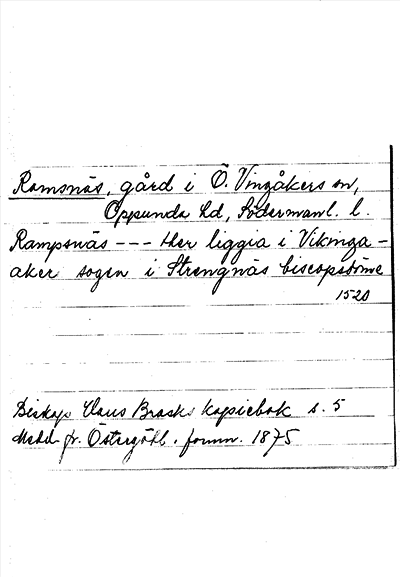 Ramsnäs, gård i Ö. Vingåkers sn,
Oppunda hd, Södermanl. l.
Rampsnäs --- ther liggia i Vikinga-
aker sogen i Strengnäs biscopsdöme
1520
Biskop Hans Brasks kopiebok s. 5
Medd fr. Östergötl. fornm. 1875